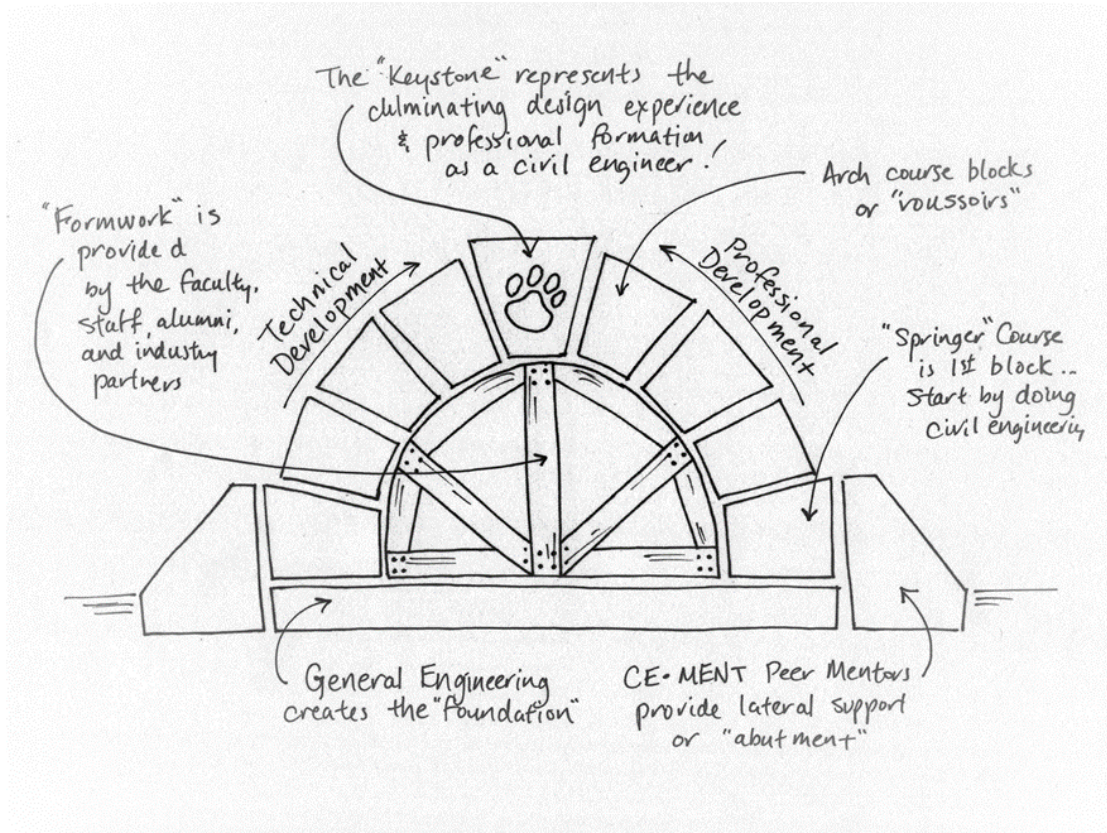 The "Keystone" represents the
culminating design experience
& professional formation
as a civil engineer!
Arch course blocks
or "voussoirs"
"Formwork" is
provided
by the faculty,
staff, alumni,
and industry
partners
Technical
Development
Professional
Development
"Springer" Course
is 1st block...
Start by doing
Civil engineering
General Engineering
creates the "Foundation"
CE•MENT Peer Mentors
provide lateral support
or "abutment"